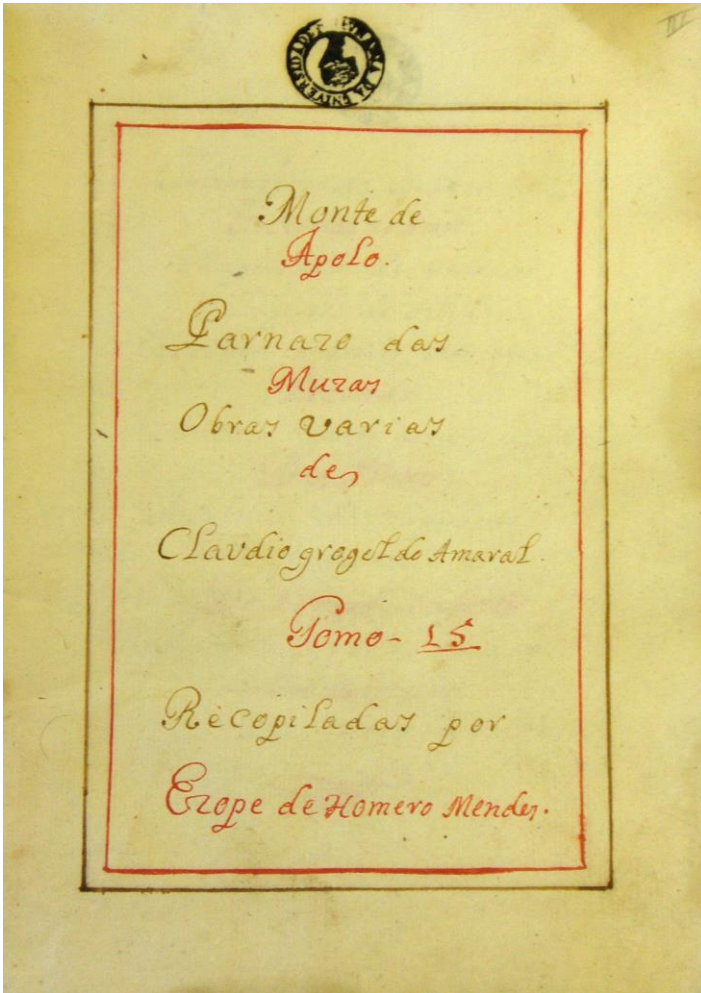 Monte de
Apolo.
Parnazo das
Muzas
Obras varias
de
Claudio grogel do Amaral.
Tomo - 15
Recopiladas por
Ezope de Homero Mendes.